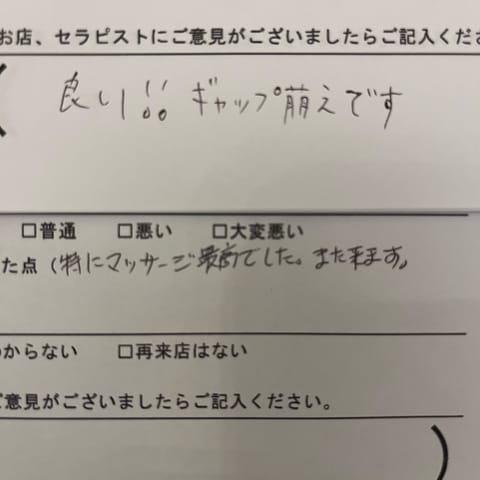 お店、セラピストにご意見がございましたらご記入くださ
良い!! ギャップ萌えです
□普通 □悪い □大変悪い
た点（特にマッサージ最高でした。また来ます。
からない □再来店はない
ご意見がございましたらご記入ください。
）